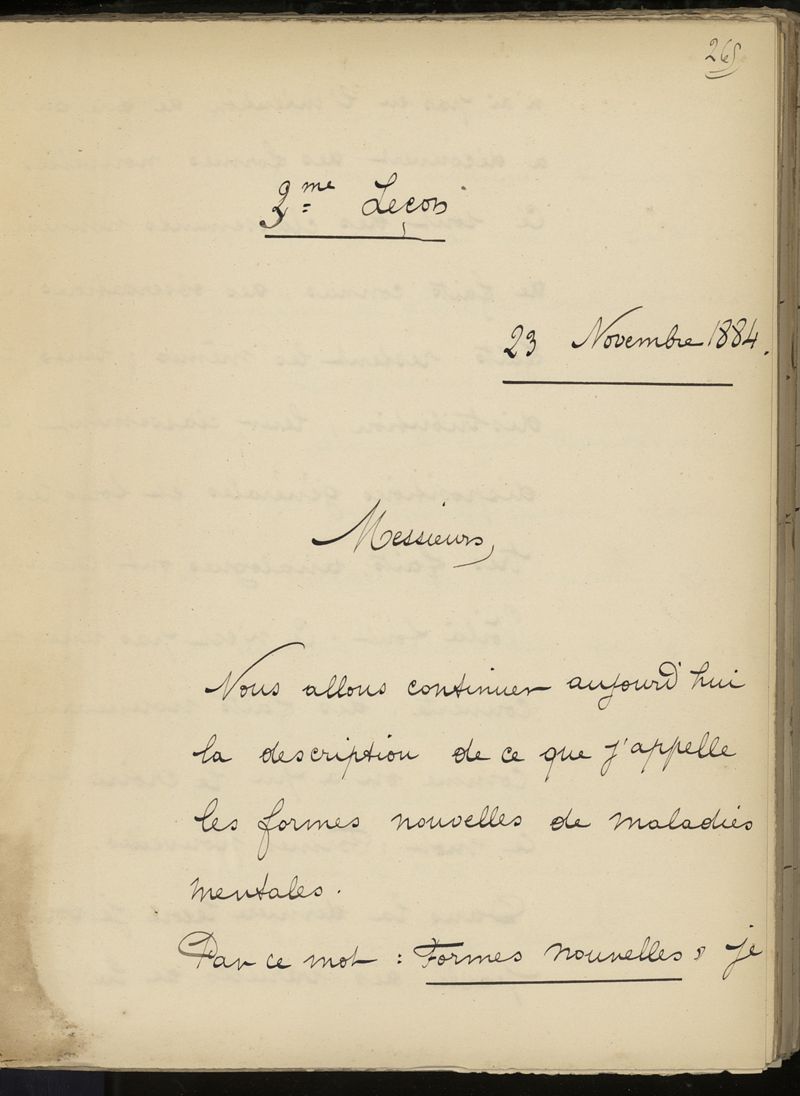 265
2me Leçon
23 Novembre 1884.
Messieurs,
Nous allons continuer aujourd'hui
la description de ce que j'appelle
les formes nouvelles de maladies
mentales.
Par ce mot : Formes nouvelles, je